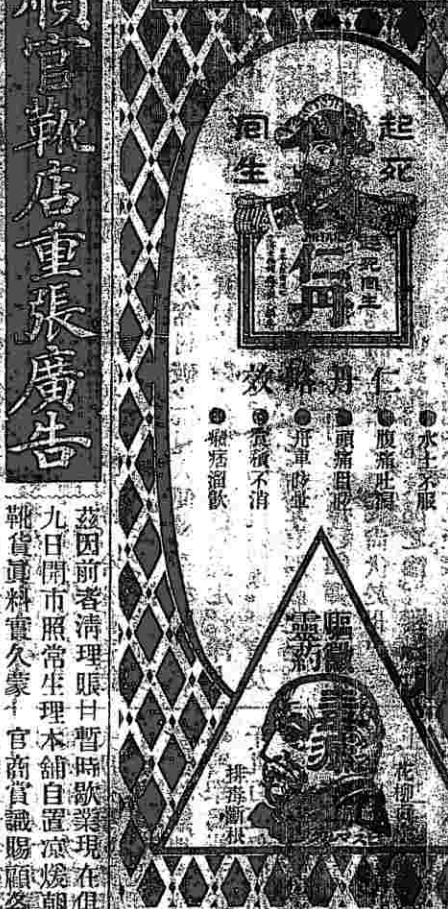 起死
回生
起死回生
仁丹
仁丹略效
水土不服
腹痛吐瀉
頭痛目眩
舟車眩暈
食積不消
驅黴
靈药
花柳
排毒斷根
官靴店重張廣告
茲因前者清理賬目暫時歇業現在
九日開市照常生理本舖自置凉煖朝
靴貨眞料實久蒙
官商賞識賜顧